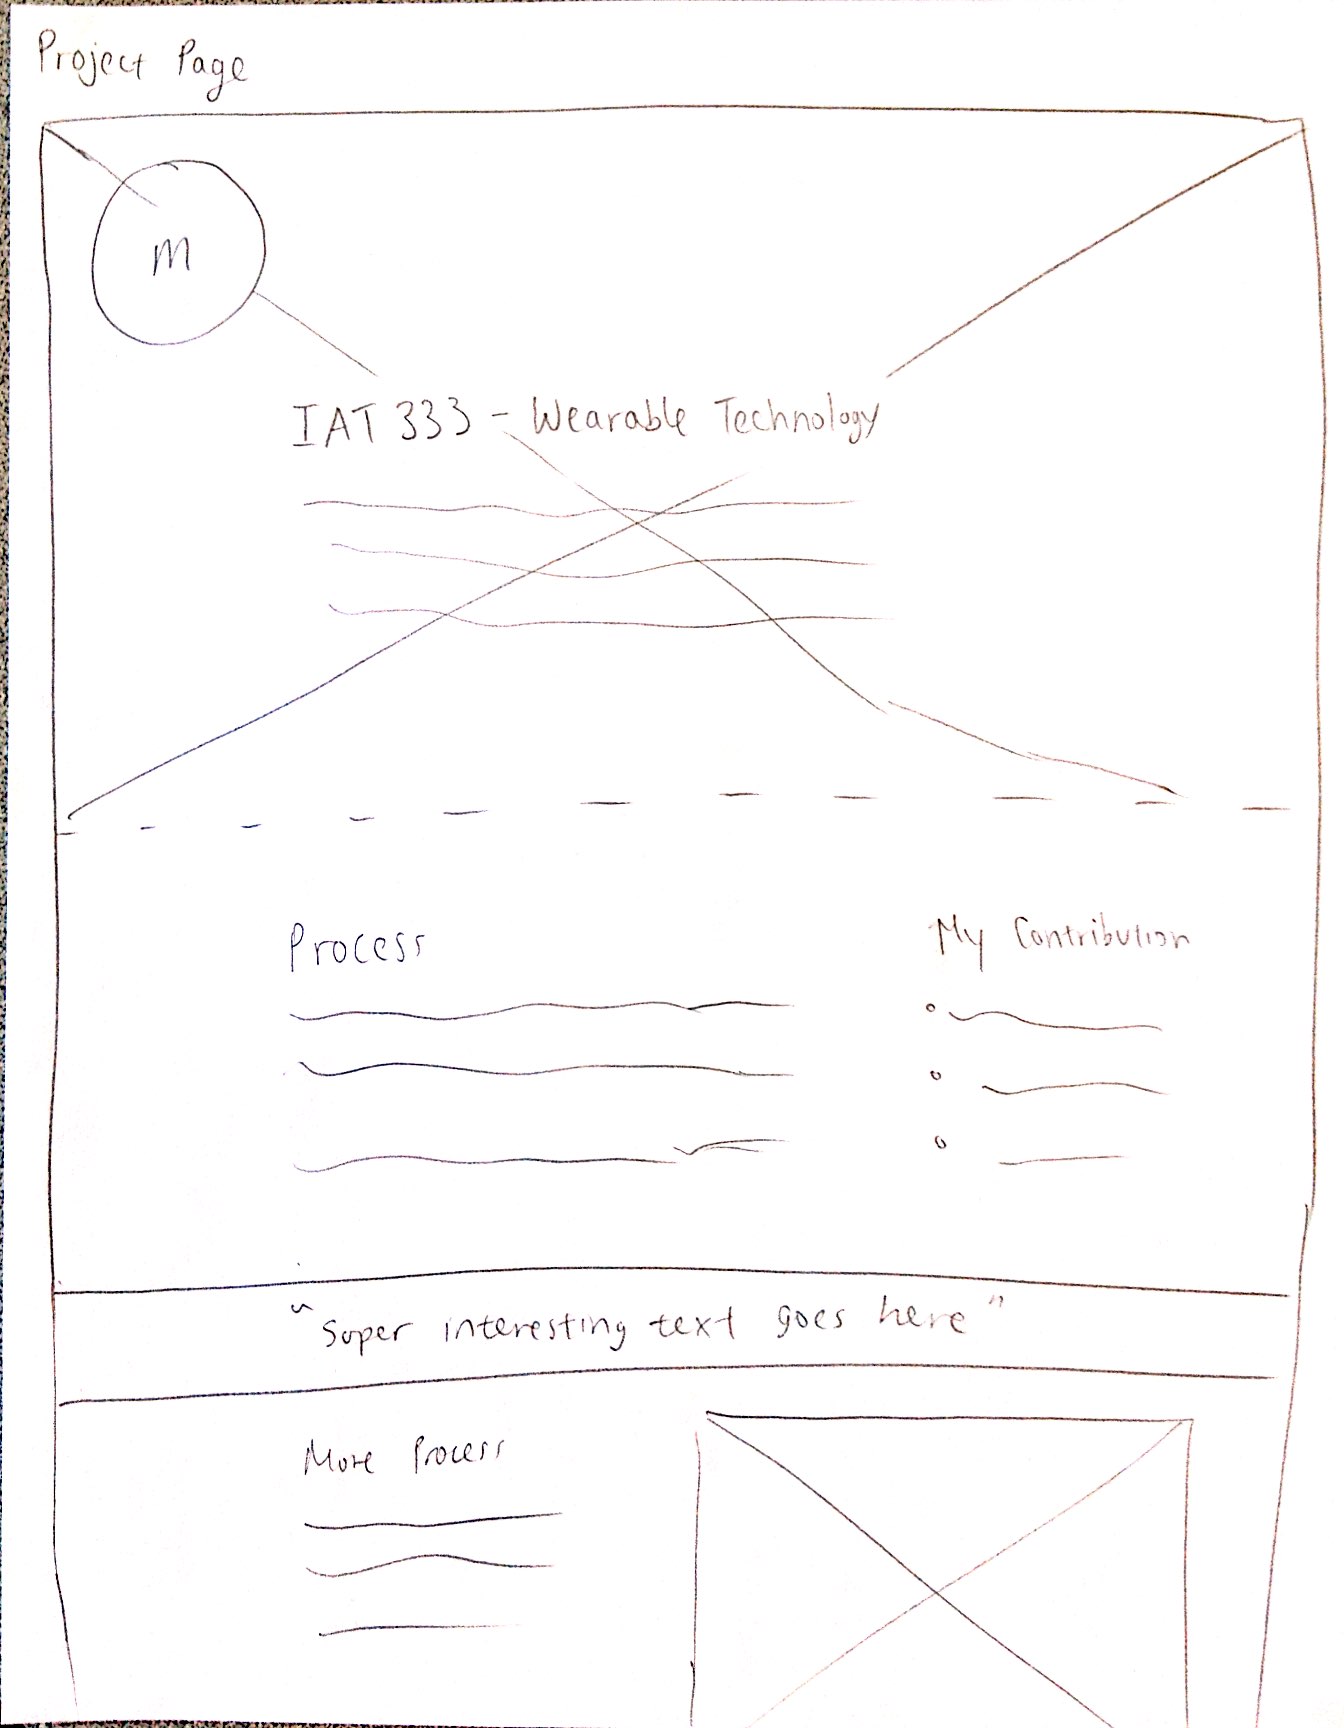 Project Page
m
IAT 333 - Wearable Technology
Process
My Contribution
"Super interesting text goes here"
More Process